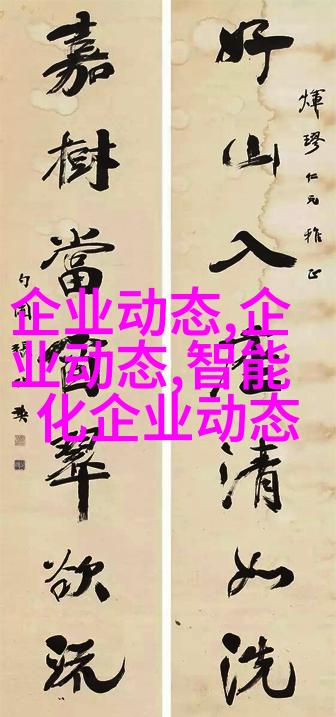 仁兄雅正
好山入座清如洗
嘉樹當窗翠欲流
企业动态,企
业动态,智能
化企业动态